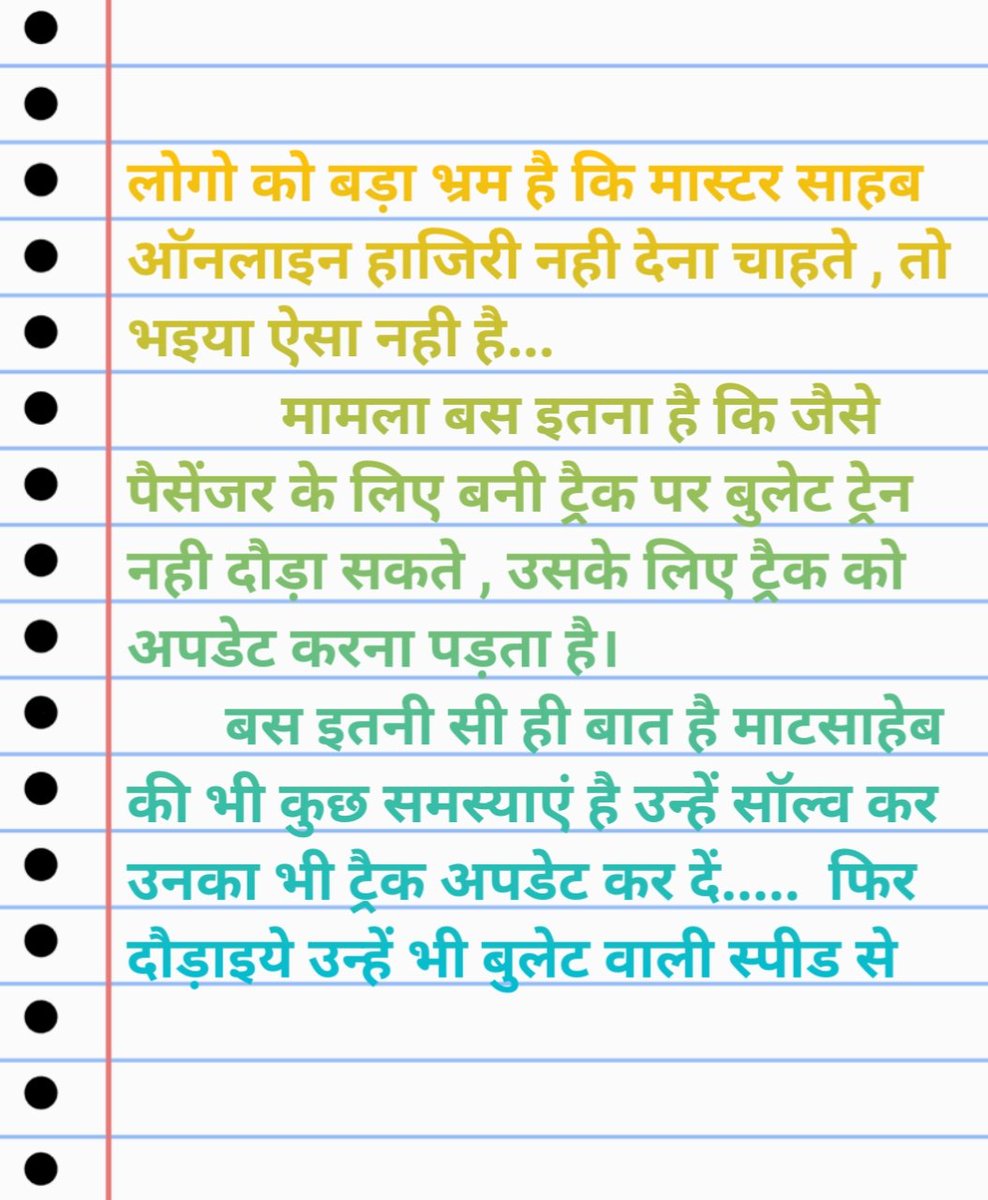 लोगो को बड़ा भ्रम है कि मास्टर साहब
ऑनलाइन हाजिरी नही देना चाहते , तो
भइया ऐसा नही है...
मामला बस इतना है कि जैसे
पैसेंजर के लिए बनी ट्रैक पर बुलेट ट्रेन
नही दौड़ा सकते , उसके लिए ट्रैक को
अपडेट करना पड़ता है।
बस इतनी सी ही बात है माटसाहेब
की भी कुछ समस्याएं है उन्हें सॉल्व कर
उनका भी ट्रैक अपडेट कर दें..... फिर
दौड़ाइये उन्हें भी बुलेट वाली स्पीड से